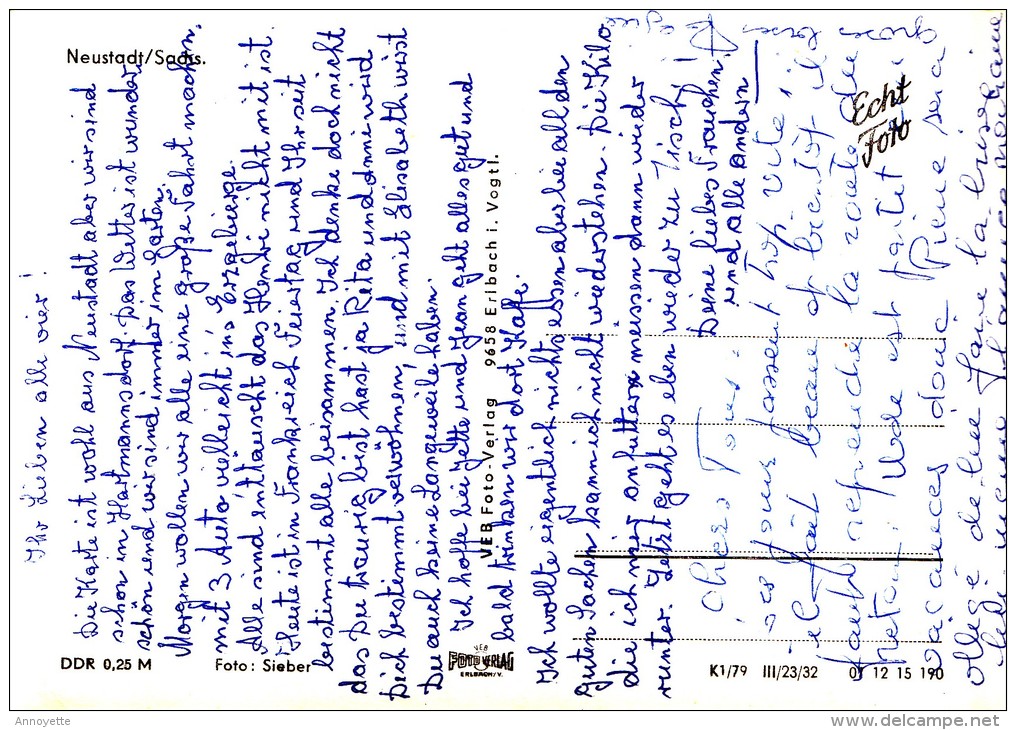 Neustadt/Sachs.
Ihr Lieben alle vier!
Die Karte ist wohl aus Neustadt aber wir sind
schon in Hartmannsdorf. Das Wetter ist wunder
schön und wir sind immer im Garten.
Morgen wollen wir alle eine große Fahrt machen.
mit 3 Auto vielleicht in's Erzgebierge.
Alle sind enttäuscht das Henri nicht mit ist.
Heute ist in Frankreich Feiertag und Ihr seit
bestimmt alle beisammen. Ich denke doch nicht
das Du traurig bist hast ja Rita und Annie wird
Dich bestimmt verwöhnen, und mit Elisabeth wirst
Du auch keine Langweile haben.
Ich hoffe bei Yette und Jean geht alles gut und
bald trinken wir dort Kaffe.
Ich wollte eigentlich nichts essen aber bei all den
guten Sachen kann ich nicht wiederstehen. Die Kilo
die ich mir anfutter müssen dann wieder
runter. Jetzt geht es eben wieder zu Tisch!
Deine liebes Frauchen.
und alle andern
Chers Tous.
les jours passent trop vite il
il fait beau et bientôt il
faudra reprendre la route du
retour. Ude est parti
vacances donc Pierre sera
obligé de lui faire la
grosses bises
VEB Foto-Verlag 9658 Erlbach i. Vogtl.
Echt
Foto
DDR 0,25 M
Foto: Sieber
VEB
FOTO VERLAG
ERLBACH/V.
K1/79 III/23/32 07 12 15 190
Annoyette
www.delcampe.net